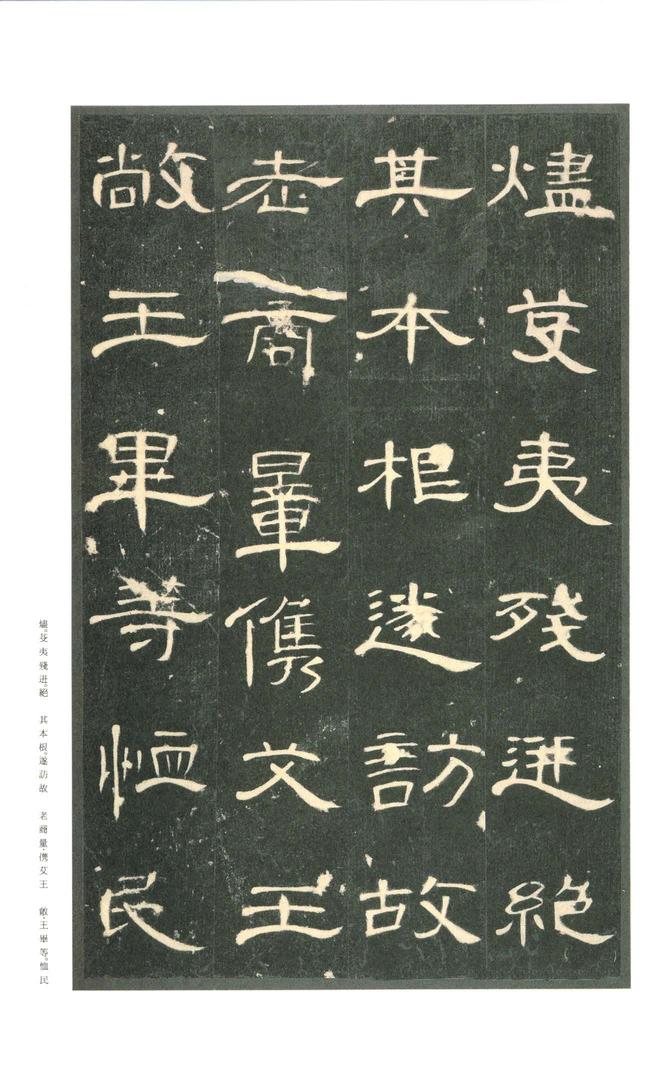 燼芟夷殘迸絕
其本根遂訪故
老商量儁艾王
敞王畢等恤民
燼。芟夷殘迸。絕　其本根。遂訪故　老商量・儁艾王　敞・王畢等。恤民